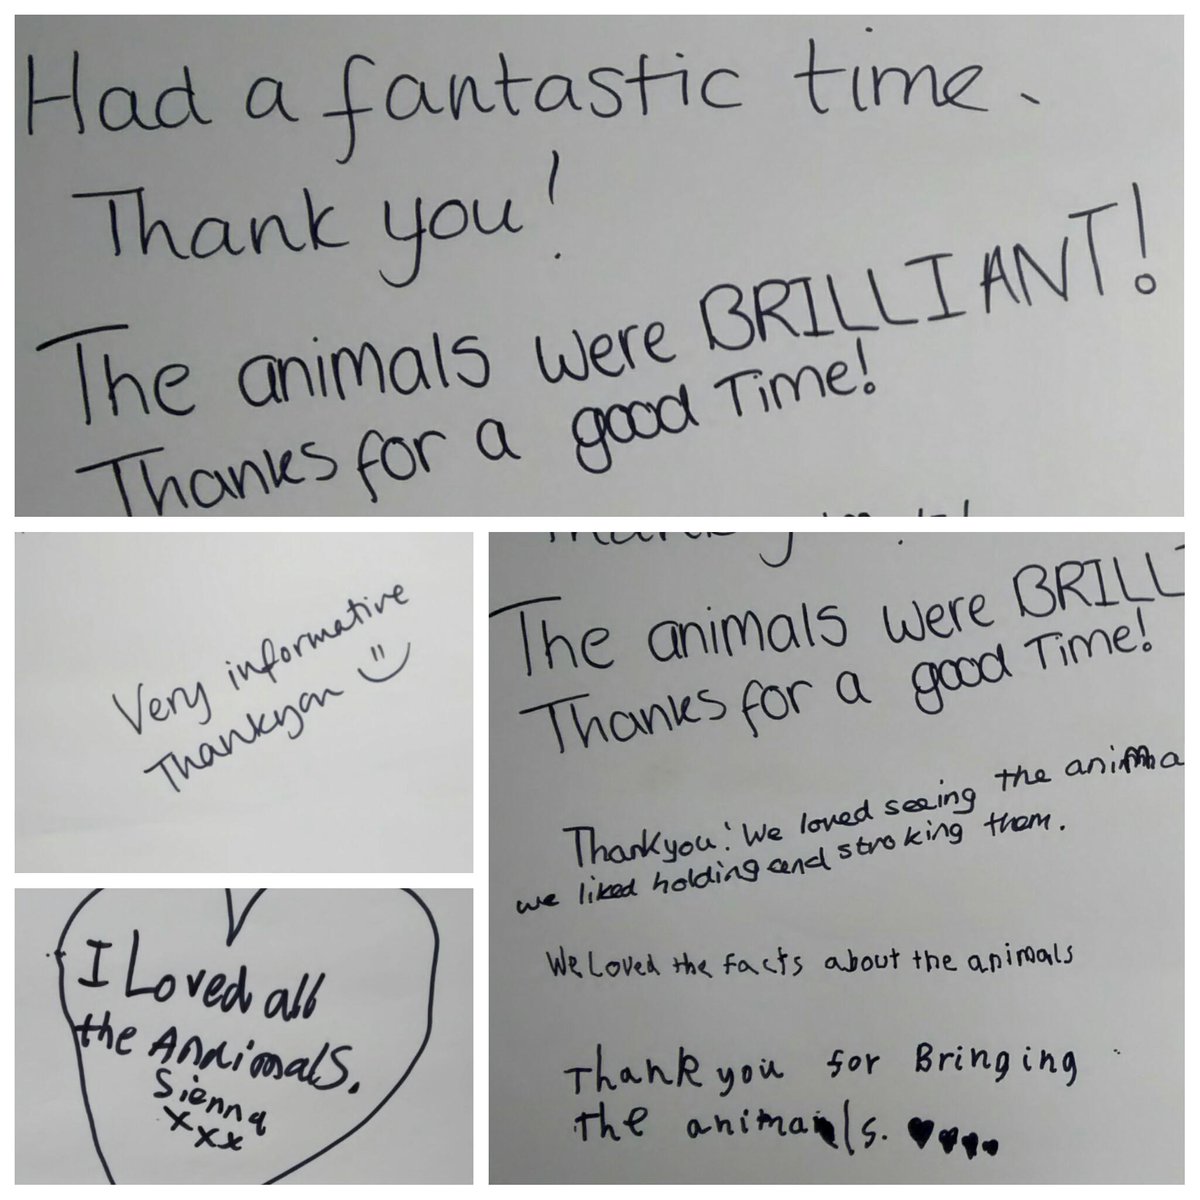 Had a fantastic time.
Thank you!
The animals were BRILLIANT!
Thanks for a good Time!
Very informative
Thankyou
I Loved all
the Andimals.
Sienna
xxx
The animals were BRILL
Thanks for a good Time!
Thankyou! We loved seeing the anima
we liked holding and stroking them.
We Loved the facts about the animals
Thank you for Bringing
The animals.